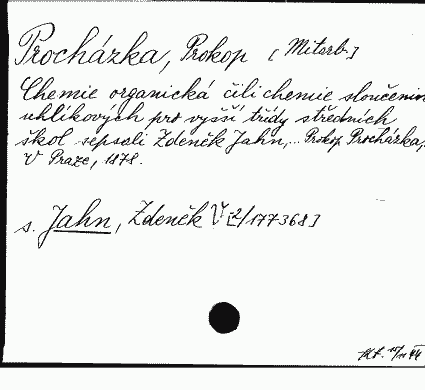 Procházka, Prokop [Mitarb.]
Chemie organická čili chemie sloučenin
uhlíkových pro vyšší třídy středních
škol sepsali Zdeněk Jahn,... Prokop Procházka,
V Praze, 1878.
s. Jahn, Zdeněk V [2/177368]